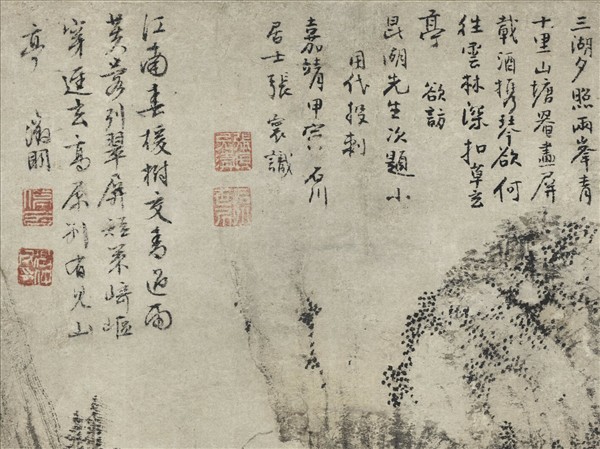 三湖夕照兩峯青
十里山塘罨畫屏
載酒携琴欲何
往雲林深扣草玄
亭 欲訪
昆湖先生次題小
用代投刺
嘉靖甲寅石川
居士張寰識
江南春樹交青過雨
芙蓉列翠屏短策崎嶇
穿逕去高原別有見山
亭 徵明